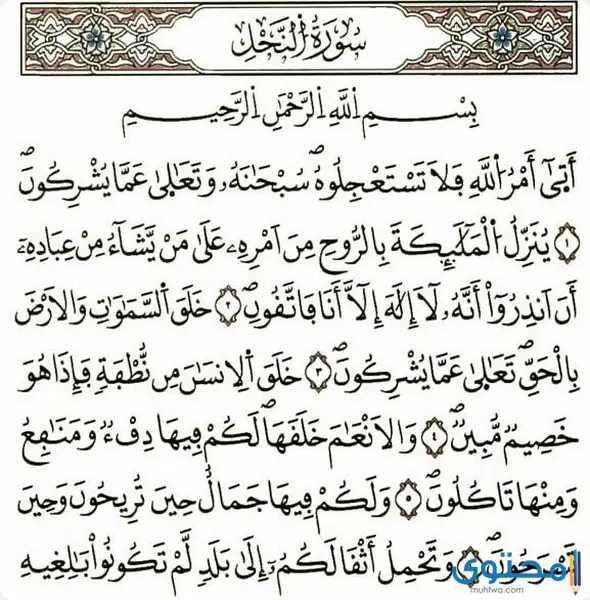 سُورَةُ النَّحْلِ
بِسْمِ اِللَّهِ اِلرَّحْمَٰنِ اِلرَّحِيمِ
أَتَىٰٓ أَمْرُ اُللَّهِ فَلَا تَسْتَعْجِلُوهُۖ سُبْحَٰنَهُۥ وَتَعَٰلَىٰ عَمَّا يُشْرِكُونَۖ
١ يُنَزِّلُ اُلْمَلَٰٓئِكَةَ بِالرُّوحِ مِنَ اَمْرِهِۦ عَلَىٰ مَنْ يَّشَآءُ مِنْ عِبَادِهِۦٓ
أَنَ اَنذِرُوٓاْ أَنَّهُۥ لَآ إِلَٰهَ إِلَّآ أَنَا فَاتَّقُونِۖ ٢ خَلَقَ اَلسَّمَٰوَٰتِ وَالَارْضَ
بِالْحَقِّۖ تَعَٰلَىٰ عَمَّا يُشْرِكُونَۖ ٣ خَلَقَ اَلِانسَٰنَ مِن نُّطْفَةٍ فَإِذَا هُوَ
خَصِيمٌ مُّبِينٌۖ ٤ وَالَانْعَٰمَ خَلَقَهَاۖ لَكُمْ فِيهَا دِفْءٌ وَمَنَٰفِعُ
وَمِنْهَا تَاكُلُونَۖ ٥ وَلَكُمْ فِيهَا جَمَالٌ حِينَ تُرِيحُونَ وَحِينَ
تَسْرَحُونَۖ وَتَحْمِلُ أَثْقَالَكُمُۥٓ إِلَىٰ بَلَدٍ لَّمْ تَكُونُواْ بَٰلِغِيهِ
محتوى
muhtwa.com